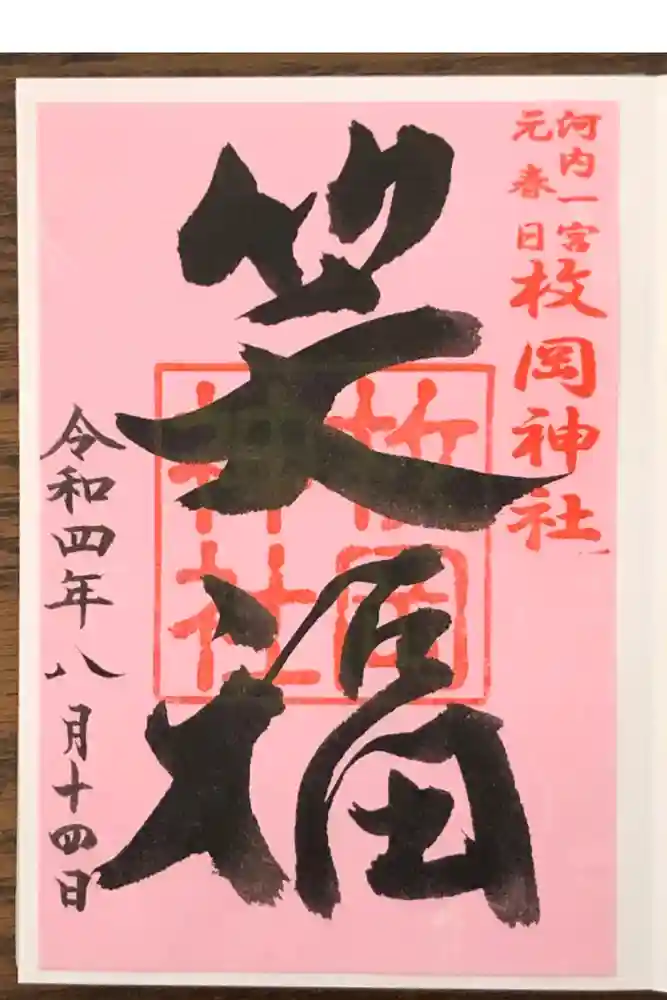 河内一宮
元春日
枚岡神社
笑福
枚岡神社
令和四年八月十四日